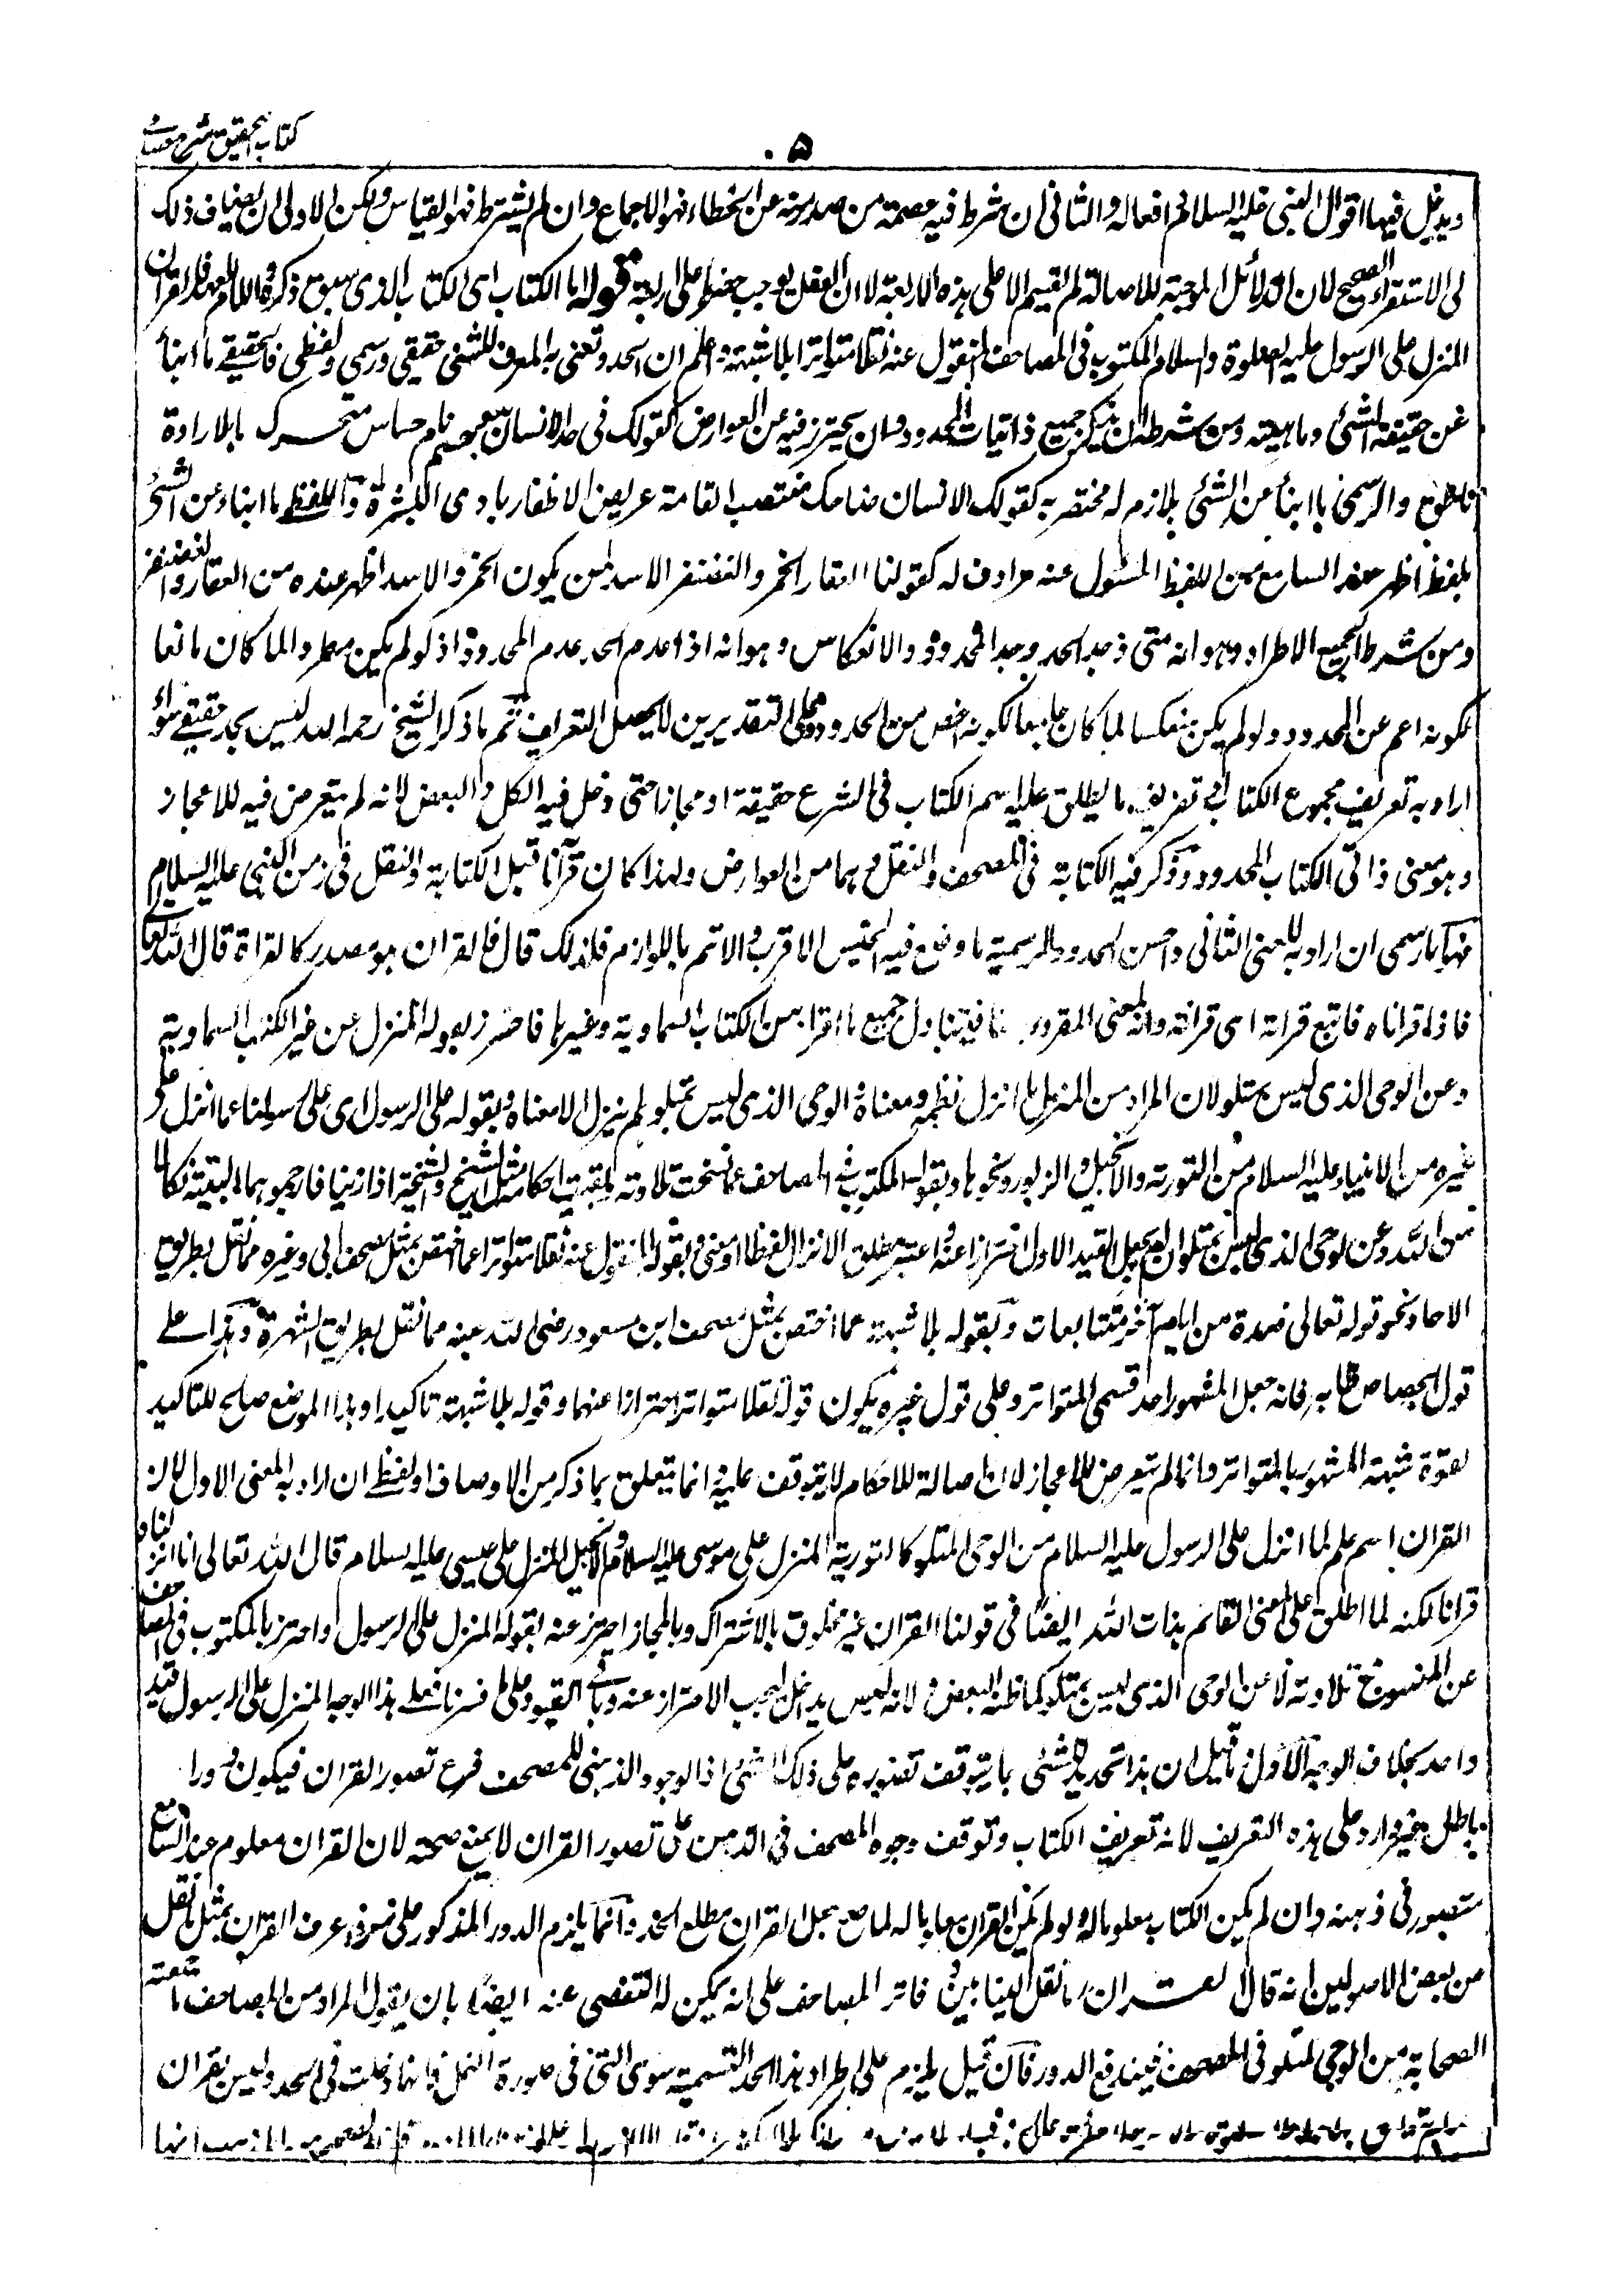 كتاب التحقيق شرح حسامي
٥
ويدخل فيها اقوال النبي عليه السلام وافعاله والثاني ان شرط فيه عصمة من صدر منه عن الخطاء فهو الاجماع وان لم يشترط فهو القياس ولكن الاولى ان يضاف ذلك
الى الاستقراء الصحيح لان الدلائل الموجبة للاصالة لم تقيم الا على هذه الاربعة لا ان العقل يوجب حصرها على اربعة قوله اما الكتاب اى الكتاب الذى سبق ذكره واللام للعهد فالقران
المنزل على الرسول عليه الصلوة والسلام المكتوب في المصاحف المنقول عنه نقلا متواترا بلا شبهة واعلم ان الحد ونعنى به المعرف للشئ حقيقي ورسمي ولفظي فالحقيقي ما انبأ
عن حقيقة الشئ وماهيته ومن شرطه ان يذكر جميع ذاتيات المحدود وان يحترز فيه عن العوارض كقولك في حد الانسان جسم نام حساس متحرك بالارادة
ناطق والرسمي ما انبأ عن الشئ بلازم له مختص به كقولك الانسان ضاحك منتصب القامة عريض الاظفار بادى البشرة واللفظي ما انباء عن الشئ
بلفظ اظهر عند السامع من اللفظ المسئول عنه مرادف له كقولنا العقار الخمر والغضنفر الاسد لمن يكون الخمر والاسد اظهر عنده من العقار والغضنفر
ومن شرط الجميع الاطراد وهو انه متى وجد الحد وجد المحدود والانعكاس وهو انه اذا عدم الحد عدم المحدود اذ لو لم يكن مطردا لما كان مانعا
لكونه اعم عن المحدود ولو لم يكن منعكسا لما كان جامعا لكونه اخص من المحدود وعلى التقديرين لا يحصل التعريف ثم ما ذكر الشيخ رحمه الله ليس بحد حقيقي سواء
اراد به تعريف مجموع الكتاب او تعريف ما يطلق عليه اسم الكتاب في الشرع حقيقة او مجازا حتى دخل فيه الكل والبعض لانه لم يتعرض فيه للاعجاز
وهو معنى ذاتى الكتاب المحدود وذكر فيه الكتابة في المصحف والنقل وهما من العوارض ولهذا كان قرآنا قبل الكتابة والنقل في زمن النبي عليه السلام
فهو اما رسمى ان اراد به المعنى الثانى واحسن الحدود الرسمية ما وضع فيه الجنس الاقرب والاتم باللوازم فلذلك قال فالقران هو مصدر كالقراة قال الله تعالى
فاذا قراناه فاتبع قرانه اى قرائته وانه بمعنى المقروء ههنا فيتناول جميع ما يقرا من الكتاب السماوية وغيرها فاحترز بقوله المنزل عن غير الكتب السماوية
وعن الوحى الذى ليس بمتلو لان المراد من المنزل ما انزل نظمه ومعناه والوحى الذى ليس بمتلو لم ينزل الا معناه وبقوله على الرسول اى على رسولنا عما انزل على
غيره من الانبياء عليه السلام من التورته والانجيل والزبور ونحوها وبقوله المكتوب في المصاحف عما نسخت تلاوته وبقيت احكامه مثل الشيخ والشيخة اذا زنيا فارجموهما البتة نكالا
من الله وعن الوحى الذى ليس بمتلو ان لم يجعل القيد الاول احترازا عنه او اعتبر مطلق الانزال لفظا او معنى وبقوله المنقول عنه نقلا متواترا عما اختص بمثل مصحف ابى وغيره مما نقل بطريق
الاحاد نحو قوله تعالى فعدة من ايام آخر متتابعات وبقوله بلا شبهة عما اختص بمثل مصحف ابن مسعود رضى الله عنه مما نقل بطريق الشهرة وهذا على
قول الجصاص ظاهر فانه جعل المشهور احد قسمى المتواتر وعلى قول غيره يكون قوله نقلا متواترا احترازا عنهما وقوله بلا شبهة تاكيدا وهذا الموضع صالح للتاكيد
لقوة شبهة المشهور بالمتواتر وانما لم يتعرض للاعجاز لان اصالة للاحكام لا يتوقف عليه انما يتعلق بما ذكر من الاوصاف او لفظي ان اراد به المعنى الاول لان
القران اسم علم لما انزل على الرسول عليه السلام من الوحى المتلو كالتورية المنزل على موسى عليه السلام والانجيل المنزل على عيسى عليه السلام قال الله تعالى انا انزلناه
قرانا لكنه لما اطلق على المعنى القائم بذات الله ايضا في قولنا القران غير مخلوق بالاشتراك وبالمجاز احترز عنه بقوله المنزل على الرسول واحترز بالمكتوب في المصاحف
عن المنسوخ تلاوته لا عن الوحى الذى ليس بمتلو كما ظنه البعض لانه ليس بداخل ليجب الاحتراز عنه وباقي القيود على ما فسرنا فعلى هذا الوجه المنزل على الرسول قيد
واحد بخلاف الوجه الاول فان قيل ان هذا تحديد الشئى بما يتوقف تصوره على ذلك الشئ اذ الوجود الذهنى للمصحف فرع تصور القران فيكون دورا
باطلا غير وارد على هذه التعريف لانه تعريف الكتاب وتوقف وجود المصحف في الذهن على تصور القران لا يمنع صحته لان القران معلوم عند السامع
متصور في ذهنه وان لم يكن الكتاب معلوما له ولو لم يكن القران معلوما له لما صح جعل القران مطلع الحد وانما يلزم الدور المذكور على من عرف القران بمثل ما نقل
عن بعض الاصوليين انه قال القران ما نقل الينا بين دفتر المصاحف على انه يمكن له التفصى عنه ايضا بان يقول المراد من المصاحف ما جمعته
الصحابة من الوحى المتلو في المصحف فيندفع الدور فان قيل يلزم على اطراد هذا الحد التسمية سوى التى في سورة النمل فانها دخلت في الحد وليس بقران